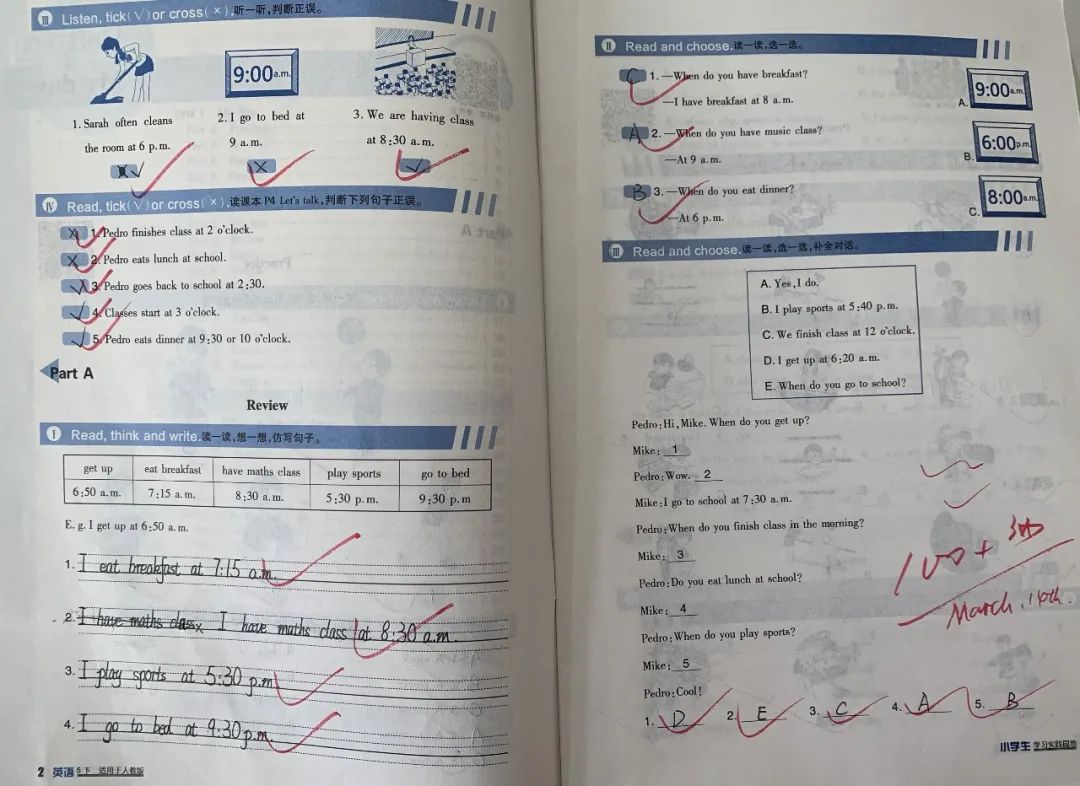 Ⅲ Listen, tick(√)or cross(×).听一听,判断正误。
9:00a.m.
1. Sarah often cleans
the room at 6 p.m.
√
2. I go to bed at
9 a.m.
×
3. We are having class
at 8:30 a.m.
√
Ⅳ Read, tick(√)or cross(×).读课本 P4 Let's talk,判断下列句子正误。
1. Pedro finishes class at 2 o'clock.
× 2. Pedro eats lunch at school.
3. Pedro goes back to school at 2:30.
√ 4. Classes start at 3 o'clock.
√ 5. Pedro eats dinner at 9:30 or 10 o'clock.
Part A
Review
Ⅰ Read, think and write.读一读,想一想,仿写句子。
get up eat breakfast have maths class play sports go to bed
6:50 a.m. 7:15 a.m. 8:30 a.m. 5:30 p.m. 9:30 p.m
E. g. I get up at 6:50 a.m.
1. I eat breakfast at 7:15 a.m.
2. I have maths class I have maths class at 8:30 a.m.
3. I play sports at 5:30 p.m
4. I go to bed at 9:30 p.m.
2 英语 5下 适用于人教版
Ⅱ Read and choose.读一读,选一选。
C 1. —When do you have breakfast?
—I have breakfast at 8 a.m.
A 2. —When do you have music class?
—At 9 a.m.
B 3. —When do you eat dinner?
—At 6 p.m.
A. 9:00a.m.
B. 6:00p.m.
C. 8:00a.m.
Ⅲ Read and choose.读一读,选一选,补全对话。
A. Yes, I do.
B. I play sports at 5:40 p.m.
C. We finish class at 12 o'clock.
D. I get up at 6:20 a.m.
E. When do you go to school?
Pedro: Hi, Mike. When do you get up?
Mike: 1
Pedro: Wow. 2
Mike: I go to school at 7:30 a.m.
Pedro: When do you finish class in the morning?
Mike: 3
Pedro: Do you eat lunch at school?
Mike: 4
Pedro: When do you play sports?
Mike: 5
Pedro: Cool!
1. D 2. E 3. C 4. A 5. B
100+
March. 14th.
小学生 学习实践园地